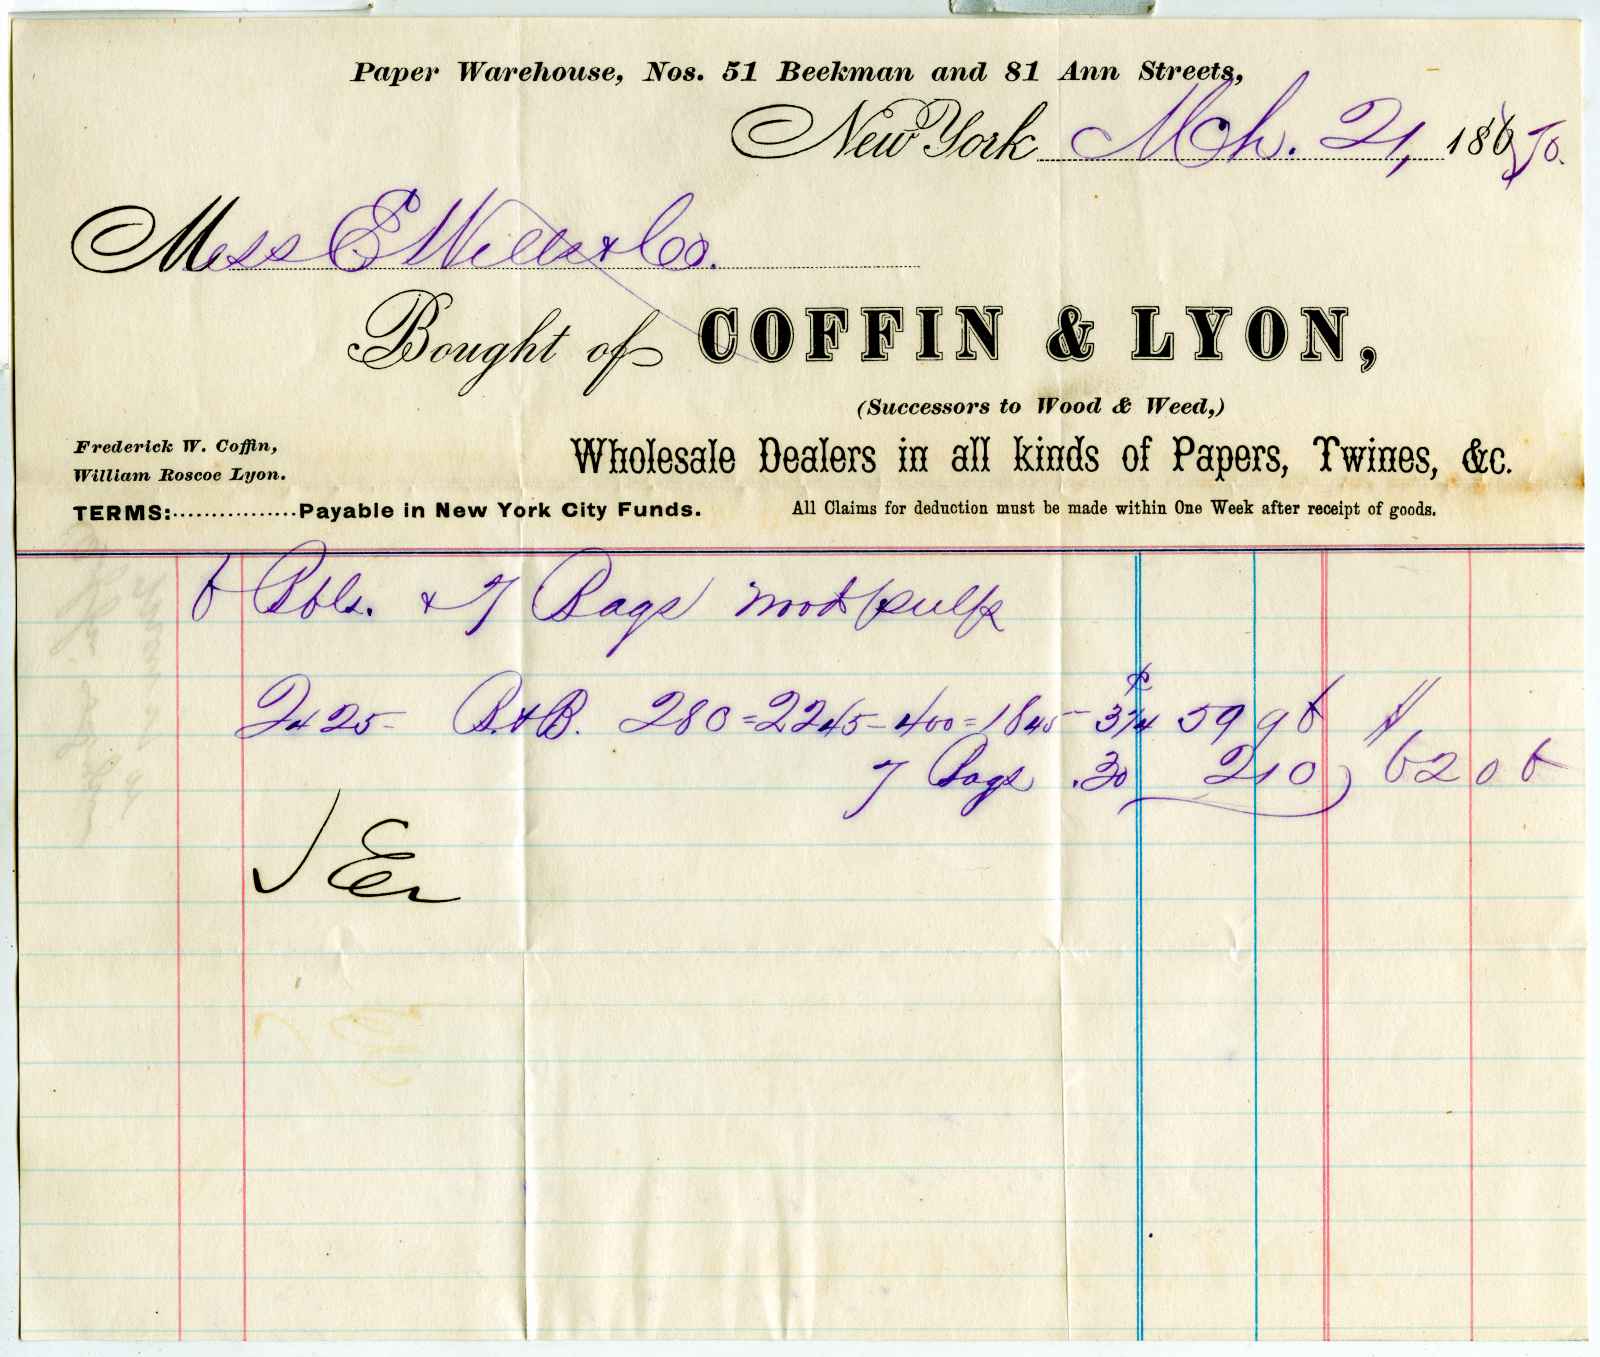 Paper Warehouse, Nos. 51 Beekman and 81 Ann Streets,
New York Mch. 21, 1870.
Mess E Wills & Co.
Bought of COFFIN & LYON,
(Successors to Wood & Weed,)
Frederick W. Coffin,
William Roscoe Lyon.
Wholesale Dealers in all kinds of Papers, Twines, &c.
TERMS:................Payable in New York City Funds.
All Claims for deduction must be made within One Week after receipt of goods.
6 Bbls. & 7 Bags wood pulp
2525 - B. & B. 280 = 2245 - 400 = 1845 - 3 1/4 59 96 $
7 Bags .30 2 10 62 06